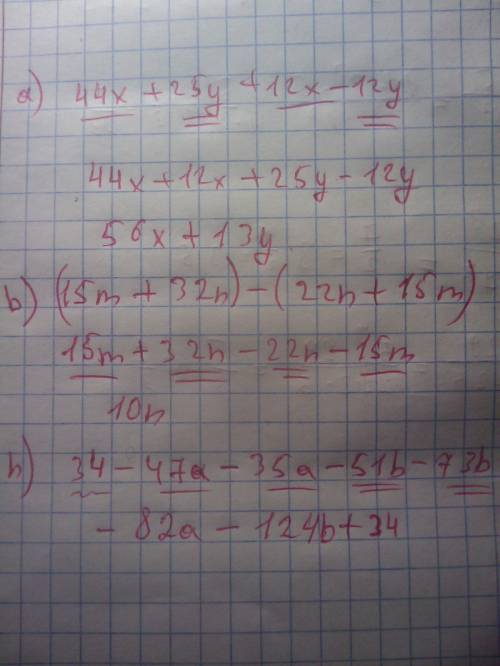 a) 44x + 25y + 12x - 12y
44x + 12x + 25y - 12y
56x + 13y
b) (15m + 32n) - (22n + 15m)
15m + 32n - 22n - 15m
10n
h) 34 - 47a - 35a - 51b - 73b
- 82a - 124b + 34